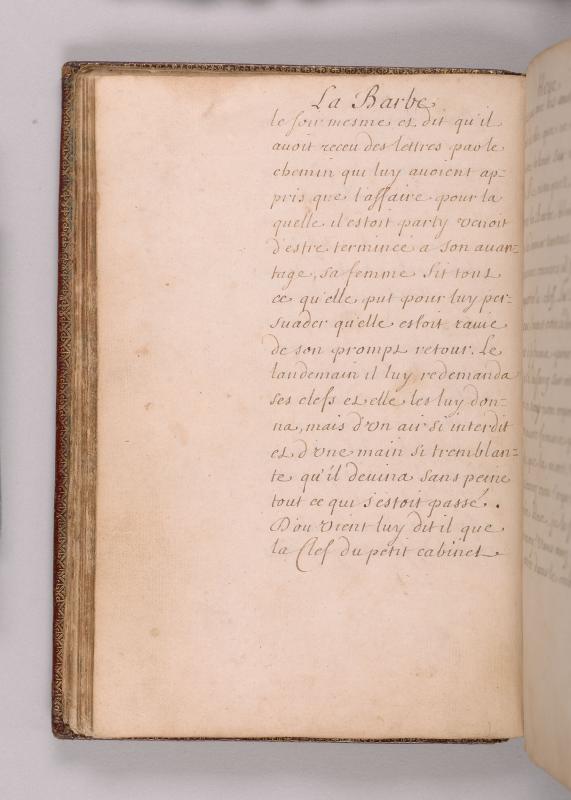 La Barbe
le soir mesme et dit qu'il
auoit receu des lettres par le
chemin qui luy auoient ap=
pris que l'affaire pour la
quelle il estoit party venoit
d'estre terminée a son auan=
tage, sa femme fit tout
ce qu'elle put pour luy per=
suader qu'elle estoit rauie
de son prompt retour. Le
landemain il luy redemanda
ses clefs et elle les luy don=
na, mais d'vn air si interdit
et d'vne main si tremblan=
te qu'il deuina sans peine
tout ce qui s'estoit passé.
D'ou vient luy dit il que
la Clef du petit cabinet